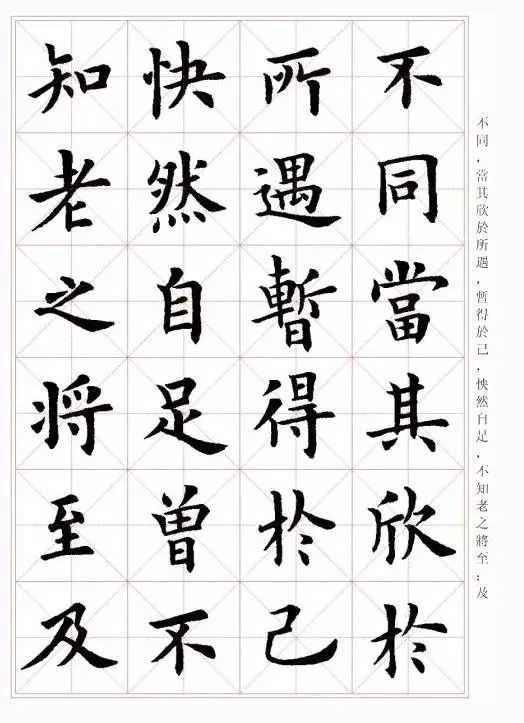 不同當其欣於
所遇暫得於己
快然自足曾不
知老之將至及
不同，當其欣於所遇，暫得於己，怏然自足，不知老之將至；及